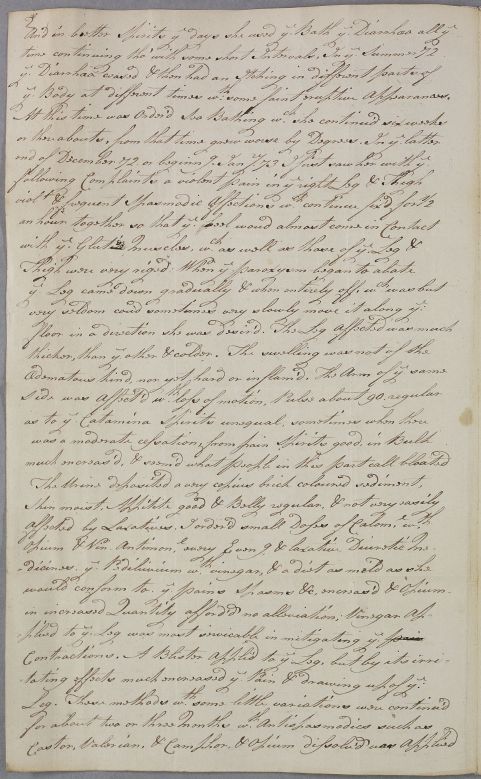 And in better Spirits yᵉ days she used yᵉ Bath yᵉ Diarrhœa all yᵉ
time continuing tho' with some short Intervals. In yᵉ Summer 72
yᵉ Diarrhœa ceas'd & then had an Itching in different parts of
yᵉ Body at different times wᵗʰ some faint eruptive Appearances.
At this time was Order'd Sea Bathing wᶜʰ she continued six weeks
or thereabouts, from that time grew worse by Degrees. In yᵉ latter
end of December 72 or beginng. of Janry 73 I first saw her with yᵉ
following Complaints a violent pain in yᵉ right Leg & Thigh
violᵗ & frequent Spasmodic Affections wᶜʰ continued fix'd for ½
an hour together so that yᵉ heel woud almost come in Contact
with yᵉ Glutei Muscles, wᶜʰ as well as those of yᵉ Leg &
Thigh were very rigid. When yᵉ paroxysm began to abate
yᵉ Leg came down gradually & when entirely off, wᶜʰ was but
very seldom coud sometimes very slowly move it along yᵉ
floor in a direction she was desired. The Leg Affected was much
thicker, than yᵉ other & colder. The swelling was not of the
Œdematous kind, nor yet, hard or inflam'd. The Arm of yᵉ same
Side was Affect'd wᵗʰ loss of motion. Pulse about 90, regular
as to yᵉ Catamina Spirits unequal, sometimes when there
was a moderate cessation, from pain Spirits good. in Bulk
much encreas'd, & seem'd what people in this part call bloated
The Urine deposited a very copius brick coloured sediment,
Skin moist, Appitite good & Belly regular, & not very easily
Affected by Laxatives. I order'd small Doses of Calom.ˡ wᵗʰ
Opium & Vin. Antimon.ˡ every Even.g & laxative Diuretic Me-
dicines. yᵉ Pediluvium wᵗʰ vinegar, & a diet as mild as she
would conform to. yᵉ pains Spasms &c. encreas'd & Opium
in increased Quantity afford'd no alleviation; Vinegar Ap-
plied to yᵉ Leg was most serviceable in mitigating yᵉ
Contractions. A Blister Applied to yᵉ Leg, but by its irri-
tating effects much encreased yᵉ Pain & drawing up of yᵉ
Leg. These methods wᵗʰ some little variations were continued
for about two or three Months wᵗʰ Antispasmodics such as
Castor, Valerian, & Camphor, & Opium dissolv'd was Applied